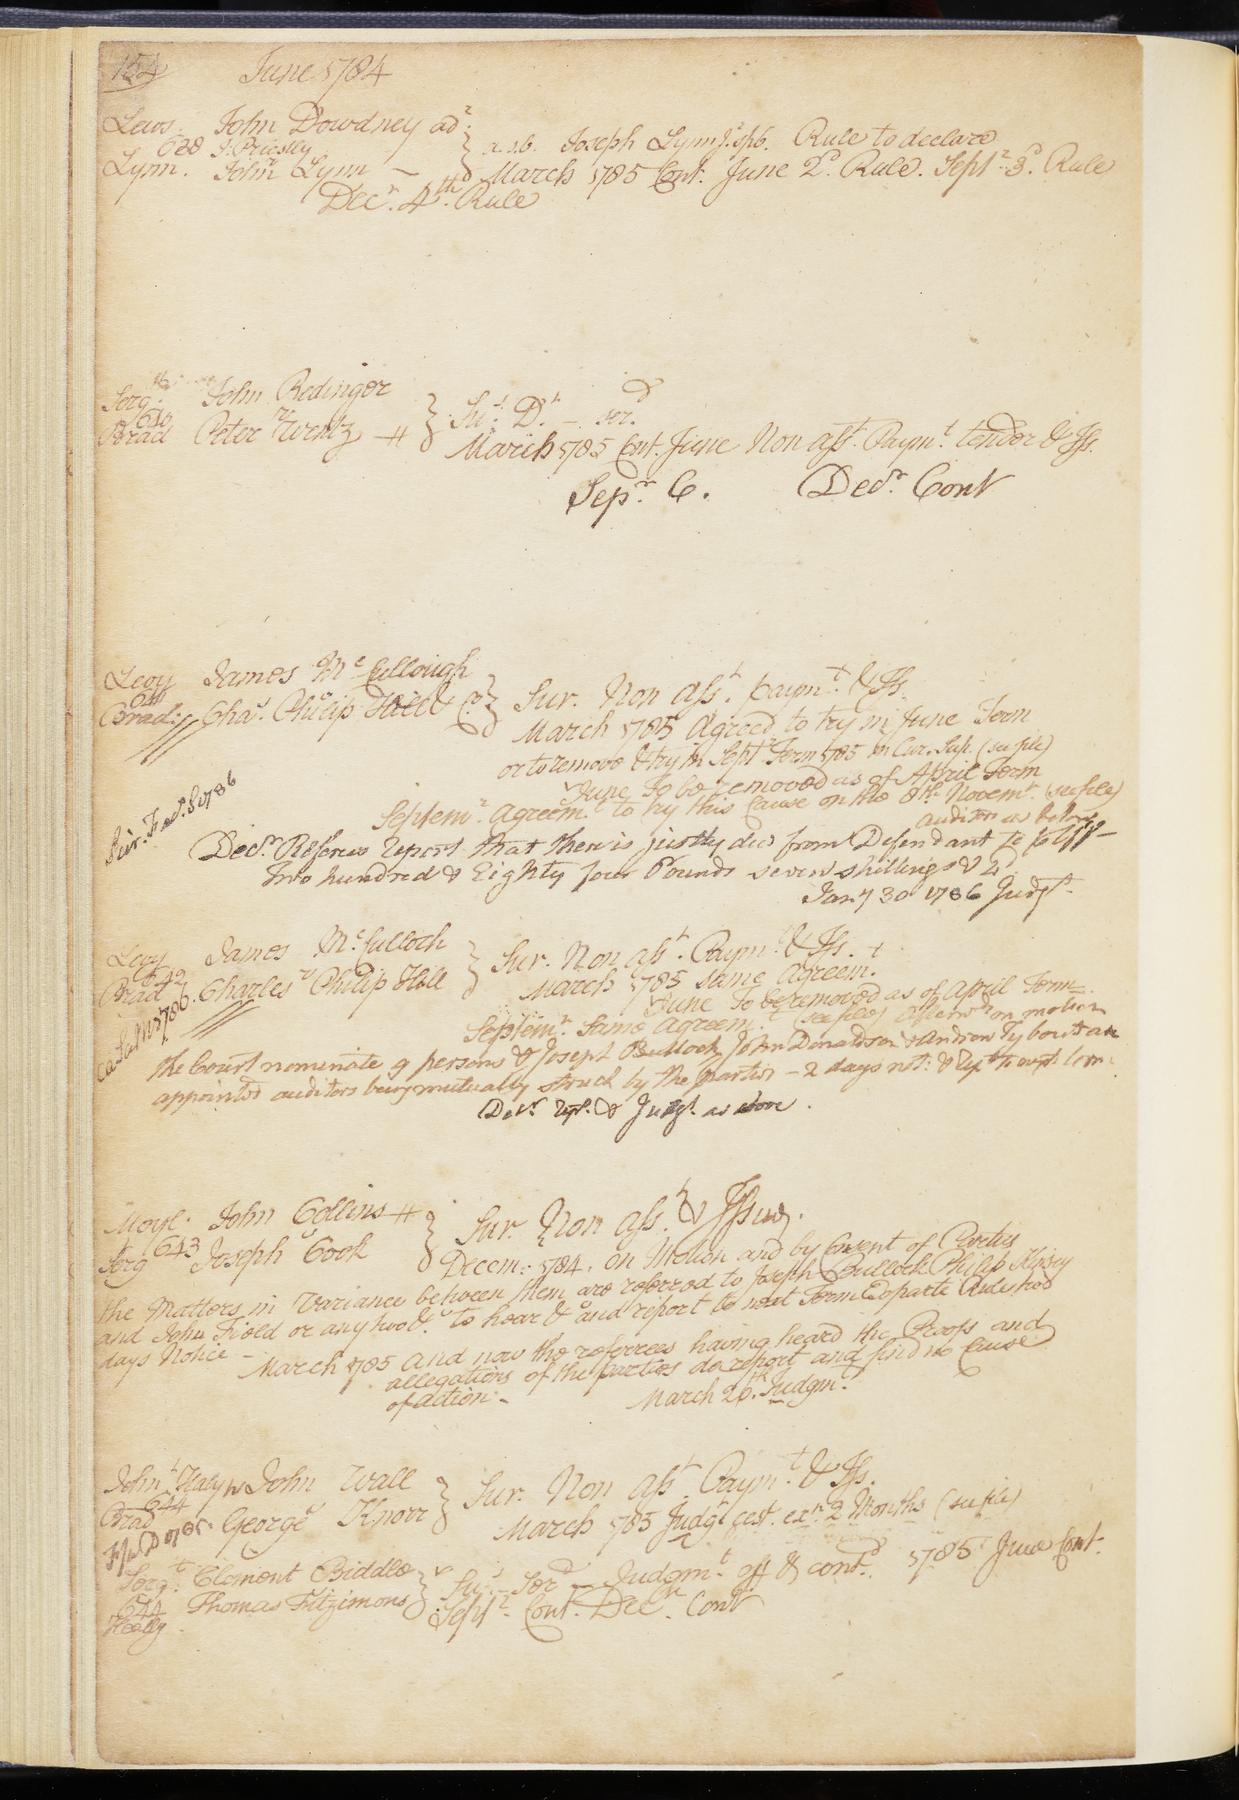 154 June 1784
Lews. John Dowdney adr.
638 J. Priestly
Lynn. v John Lynn — a.s.b. Joseph Lynn J. sp b. Rule to declare
March 1785 Cont. June 2d. Rule. Septr. 3d. Rule
Decr. 4th. Rule
Serg. John Redinger
640
Brad Peter Wentz Sus. Dt. — serd.
March 1785 Cont. June Non Asst. Paymt. tender & Iss.
Sepr. C. Decr. Cont
Levy James Mc Cullough
641
Brad: Chas. Philip Hill & Co. Sur. Non Asst. paymt. & Iss.
March 1785 Agreed to try in June Term
or to remove & try in Sept Term 1785 in Cur. Sup. (see file)
June To be removed as of April Term
Septemr. Agreemt. to try this Cause on the 8th. Novemr. (see file)
auditors as below
Sur. Fee 1786
Decr. Referees report that there is justly due from Defendant to Pltff —
Two hundred & Eighty four Pounds seven shillings & 2
Jany 30 1786 Judgt.
Levy James McCulloch
642
Brad. Charles Philip Hill Sur. Non asst. Paymt. & Iss. +
March 1785 same Agreem.
June To be removed as of April Term
Septemr. Same Agreemt. (see file) afterwds on motion
Ca Sa M 1786.
the Court nominate 9 persons & Joseph Bullock John Donaldson & Andrew Tybout are
appointed auditors being mutually struck by the parties — 2 days not:
Decr. rept. & Judgt. as above.
Moyl. John Collins
643
Serg v Joseph Cook Sur. Non asst. & Issue.
Decem: 1784. on Motion and by Consent of Parties
the Matters in Variance between them are referred to Joseph Bullock Philip Kinsey
and John Field or any two &c. to hear &c and report to next Term Exparte Rule two
days Notice —
March 1785 and now the referrees having heard the Proofs and
allegations of the parties do report and find no Cause
of action. — March 26th. Judgm.
John Haly vs John Wall
644
Brad George Knorr Sur. Non Asst. Paymt. & Iss.
March 1785 Judgt cest. exn. 2 Months (see file)
Sergt. Clement Biddle
644 Thomas Fitzimons Sus. — Serd — Judgmt. off & contd. 1785 June Cont.
Heatly Septr. Cont. Decr. Cont